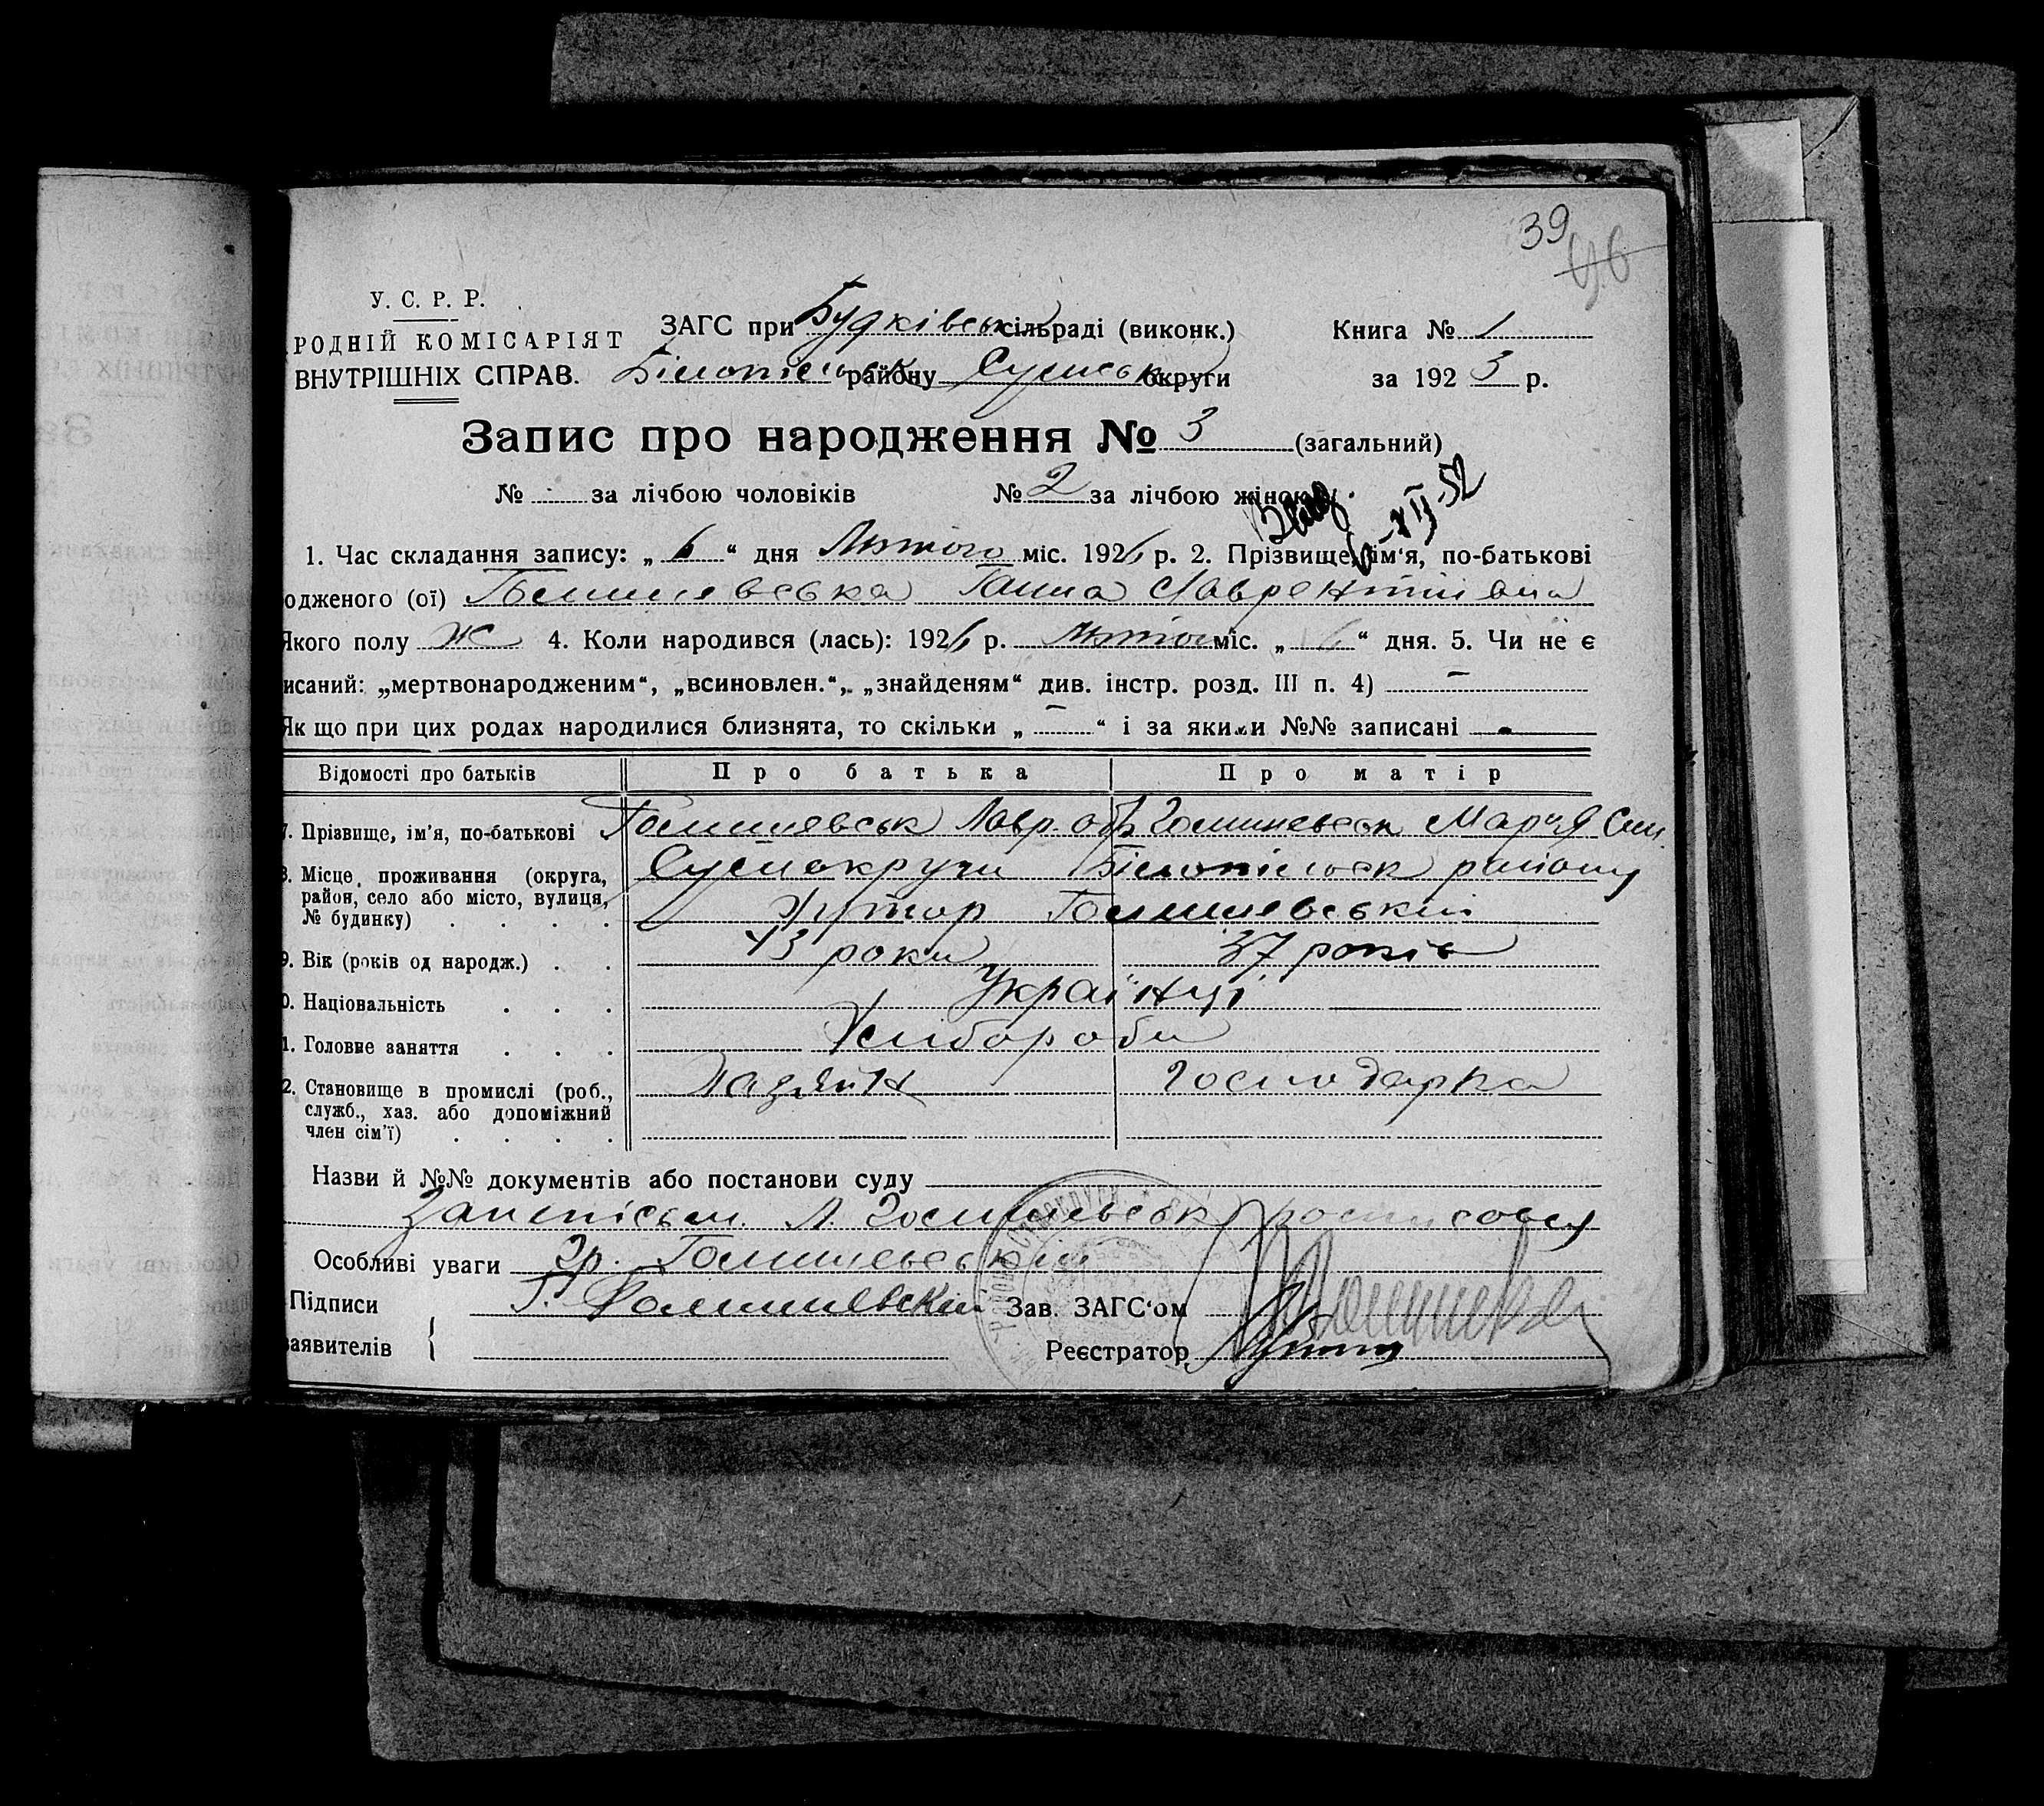 39
46
У. С. Р. Р.
РОДНІЙ КОМІСАРІЯТ
ВНУТРІШНІХ СПРАВ.
ЗАГС при Будківськ сільраді (виконк.) Книга № 1
Білопільськ району Сумськ округи за 192 3 р.
Запис про народження № 3 (загальний)
№ за лічбою чоловіків № 2 за лічбою жінок
6-XII-52
1. Час складання запису: „ 6 “ дня Лютого міс. 1926 р. 2. Прізвище, ім'я, по-батькові
одженого (ої) Ганна Лаврентіївна
Якого полу Ж 4. Коли народився (лась): 1926 р. лютого міс. „ 6 “ дня. 5. Чи не є
исаний: „мертвонародженим“, „всиновлен.“, „знайденям“ див. інстр. розд. III п. 4) —
Як що при цих родах народилися близнята, то скільки „ — “ і за якими №№ записані -
Відомості про батьків Про батька Про матір
7. Прізвище, ім'я, по-батькові Лавр. Мар'я
8. Місце проживання (округа, район, село або місто, вулиця, № будинку) Сумокруги Білопільск району
Хутор
9. Вік (років од народж.) 43 роки 37 років
0. Національність Українці
1. Головне заняття Хлибороби
2. Становище в промислі (роб., служб., хаз. або допоміжний член сім'ї) Хазяйн господарка
Назви й №№ документів або постанови суду
Особливі уваги Гр.
Підписи
заявителів
Зав. ЗАГС'ом
Реєстратор